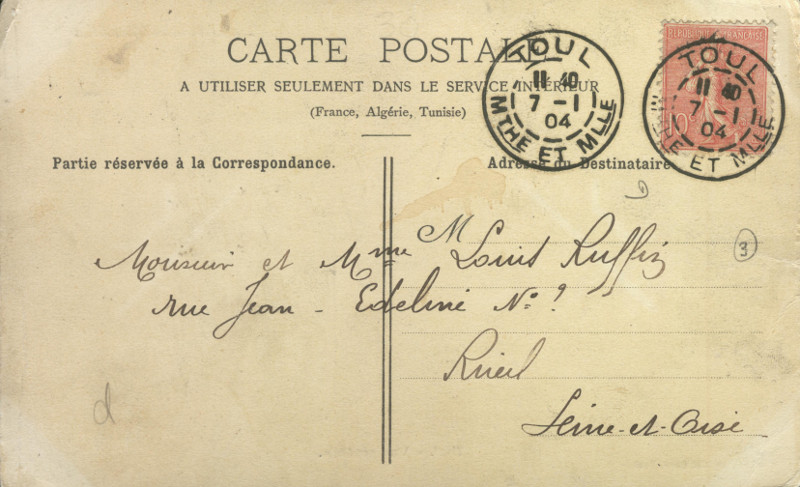 CARTE POSTALE
A UTILISER SEULEMENT DANS LE SERVICE INTÉRIEUR
(France, Algérie, Tunisie)
Partie réservée à la Correspondance.
Adresse du Destinataire
TOUL
11 40
7 - 1
04
MTHE ET MLLE
RÉPUBLIQUE FRANÇAISE
10
TOUL
11 40
7 - 1
04
MTHE ET MLLE
3
M
Monsieur et Mme Louis Ruffiz
rue Jean - Edeline No ?
Rueil
Seine-et-Oise
d